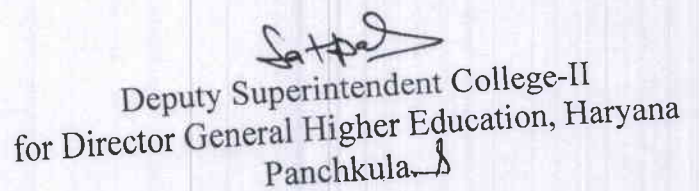 Satpal
Deputy Superintendent College-II
for Director General Higher Education, Haryana
Panchkula